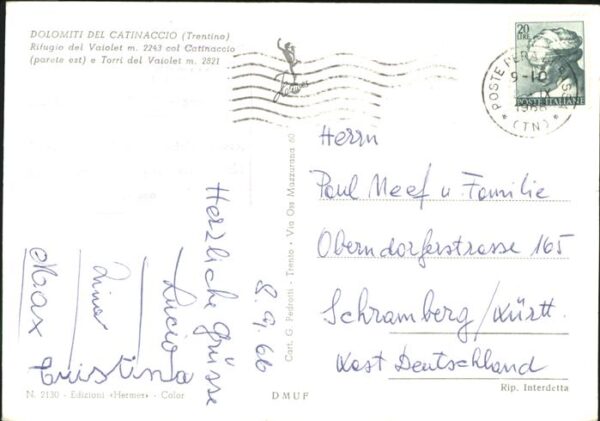 DOLOMITI DEL CATINACCIO (Trentino)
Rifugio del Vaiolet m. 2243 col Catinaccio
(parete est) e Torri del Vaiolet m. 2821
Hermes
20
LIRE
POSTE ITALIANE
POSTE PERA
9-10
1966
(TN)
8.9.66
Herzliche Grüsse
Lucio
Lina
Max
Cristina
Cart. G. Pedrotti - Trento - Via Oss Mazzurana 60
Herrn
Paul Neef u Familie
Oberndorferstrasse 165
Schramberg/Württ.
West Deutschland
N. 2130 - Edizioni «Hermes» - Color
DMUF
Rip. Interdetta